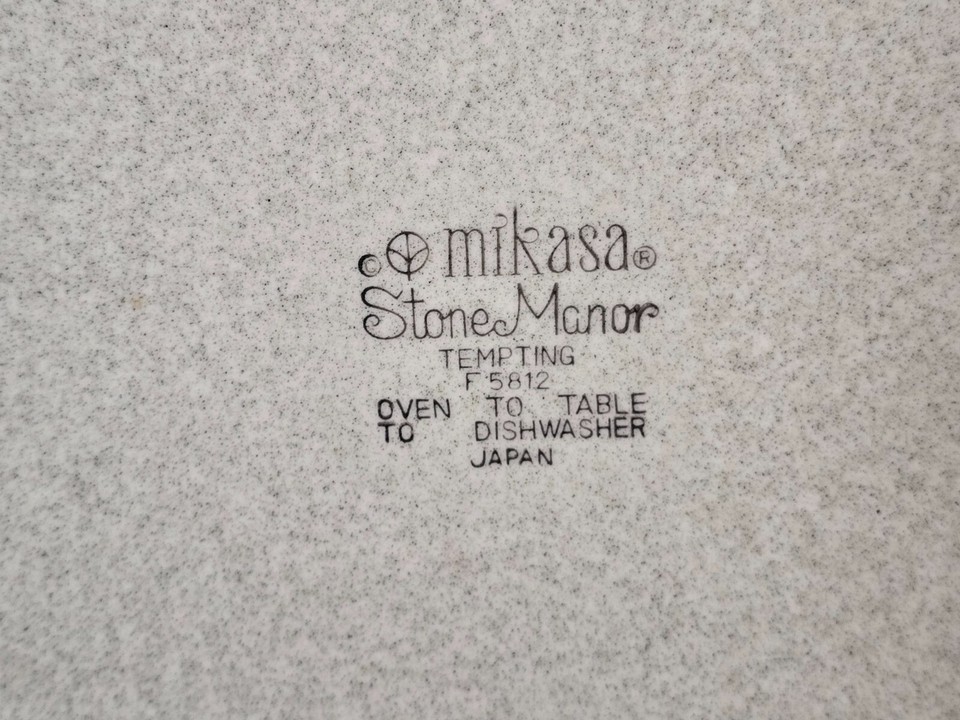 © mikasa®
Stone Manor
TEMPTING
F 5812
OVEN TO TABLE
TO DISHWASHER
JAPAN